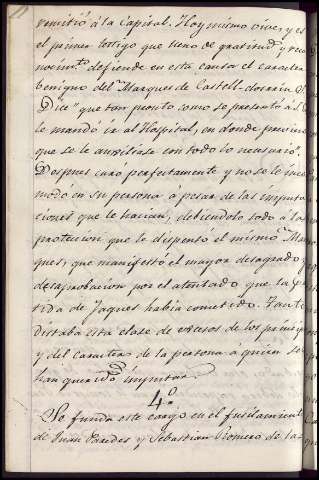 remitió á la Capital. Hoy mismo vive, y es
el primer testigo que lleno de gratitud y reco
nocim.to defiende en esta causa el caracter
benigno del Marques de Castell-dosrius
Dice "que tan pronto como se presentó á S.E.
le mandó ir al Hospital, en donde previno
que se le auxiliase con todo lo necesario".
Despues curó perfectamente y no se le inco
modó en su persona á pesar de las imputa
ciones que le hacian, debiendolo todo á la
proteccion que le dispensó el mismo Mar
ques, que manifestó el mayor desagrado y
desaprobacion por el atentado que la par
tida de Jaques habia cometido. Tanto
distaba esta clase de excesos de los princip
y del caracter de la persona á quien se
han querido imputar.
4.º
Se funda este cargo en el fusilamiento
de Juan Paredes y Sebastian Romero de la